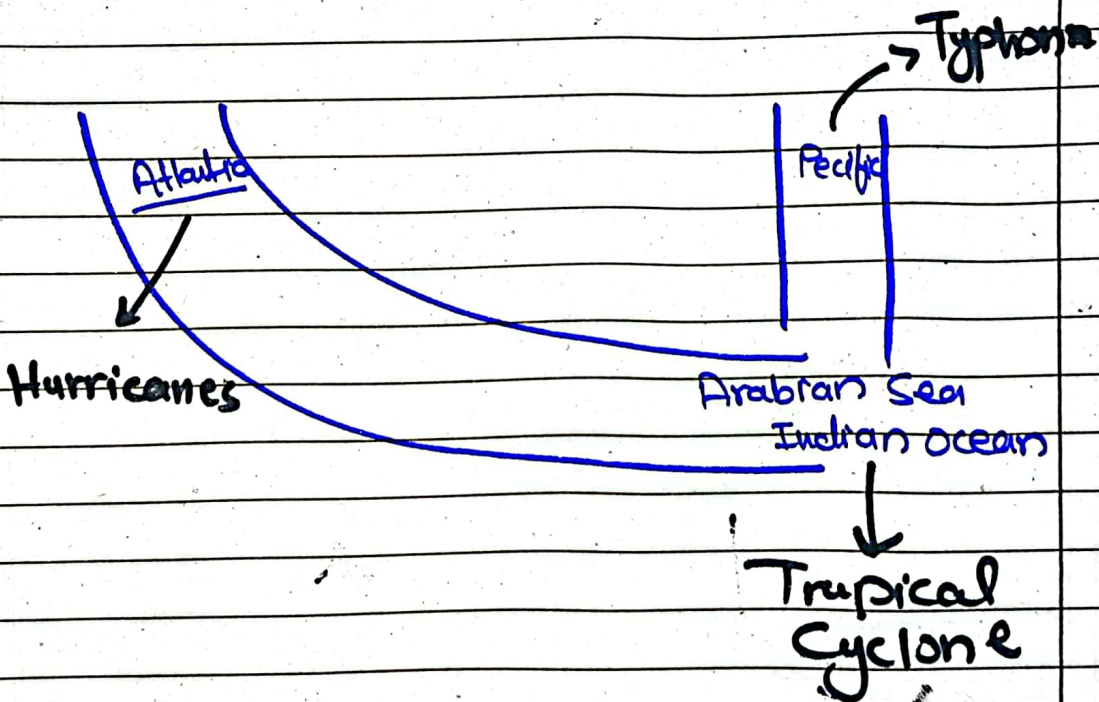 Typhonn
Atlantic
Pecific
Hurricanes
Arabian Sea
Indian ocean
Trupical
Cyclone